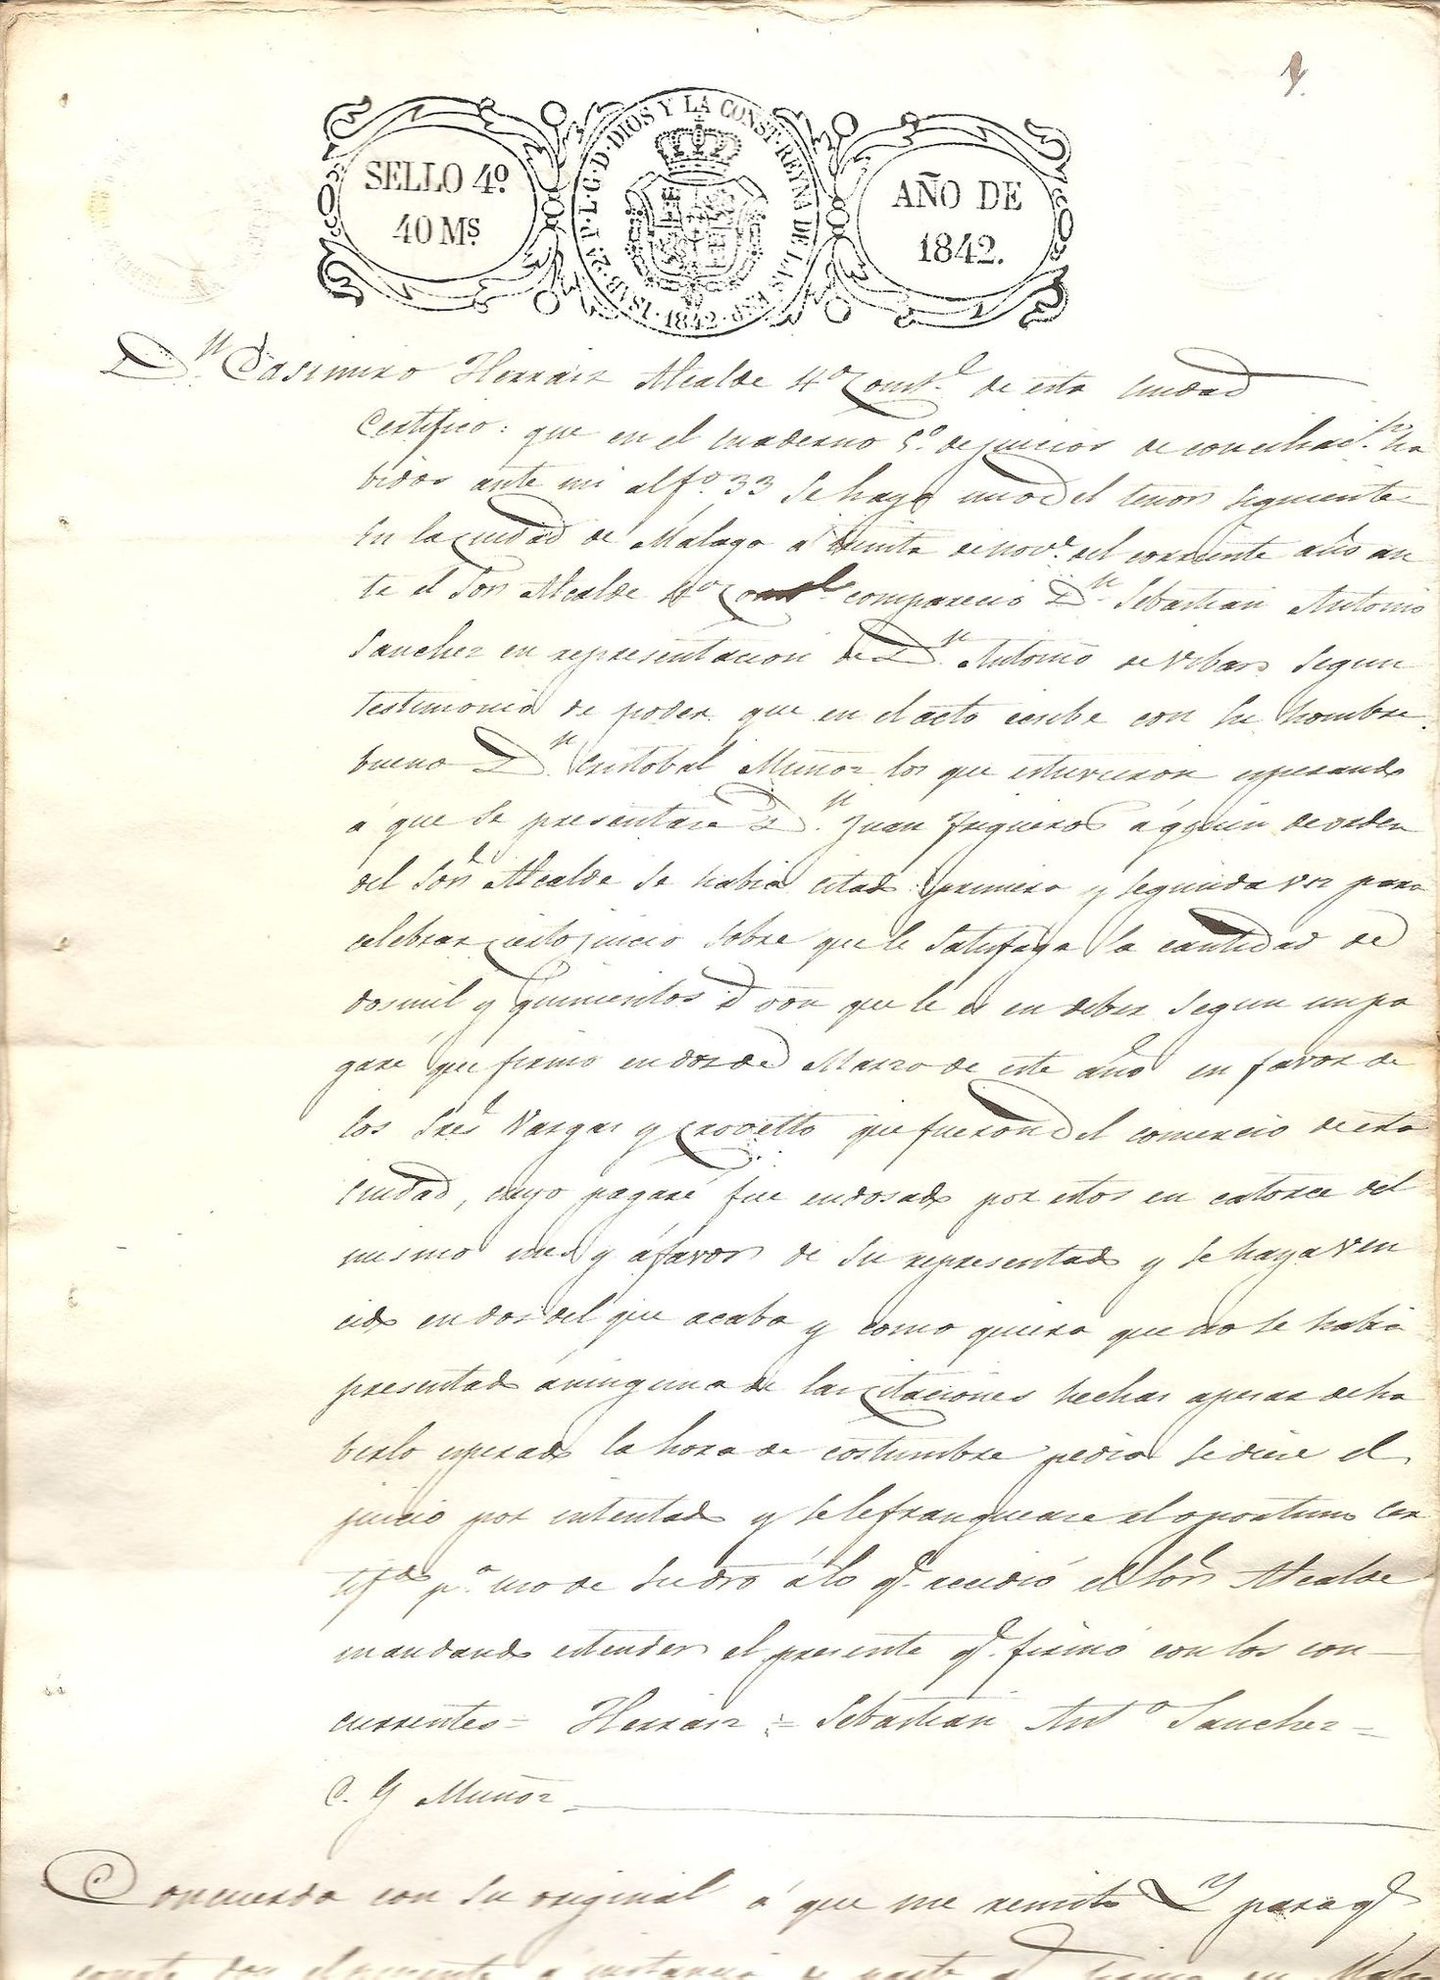 1.
SELLO 4º
40 Mˢ
ISAB. 2ª P. L. G. D. DIOS Y LA CONST. REYNA DE LAS ESP. 1842.
AÑO DE
1842.
Dⁿ. Casimiro Herraiz Alcalde 4º Constˡ. de esta Ciudad
Certifico: que en el cuaderno 5º. de juicios de conciliacⁿ. ha
vidos ante mi al fº. 33 se haya uno del tenor siguiente =
En la Ciudad de Malaga á treinta de novᵉ. del corriente año an
te el Sor Alcalde 4º Constˡ. comparecio Dⁿ. Sebastian Antonio
Sanchez en representacion de Dⁿ. Antonio de Vibar segun
testimonio de poder que en el acto exibe con su hombre
bueno Dⁿ. Cristobal Muñoz los que estuvieron esperando
á que se presentare Dⁿ. Juan Trigueros á quien de orden
del Sor Alcalde se habia citado primera y segunda vez para
celebrar este juicio sobre que le satisfaga la cantidad de
dos mil y quinientos rˢ von que le es en deber segun un pa
garé que firmó en dos de Marzo de este año en favor de
los Sres Vargas y Crovetto que fueron del comercio de esta
Ciudad, cuyo pagaré fue endosado por estos en catorce del
mismo mes y á favor de su representado y se haya ven
cido en dos del que acaba y como quiera que no se habia
presentado á ninguna de las citaciones hechas apesar de ha
berlo esperado la hora de costumbre pedia se diese el
juicio por intentado y se le franquease el oportuno cer
tifᵈᵒ pª. uso de su dro á lo q. accedió el Sor Alcalde
mandando estender el presente q. firmó con los con-
currentes = Herraiz = Sebastian Antº Sanchez =
C. Y Muñoz
Concuerda con su original á que me remito Y para q.
conste doy el presente á instancia de parte q. firmo en Mala